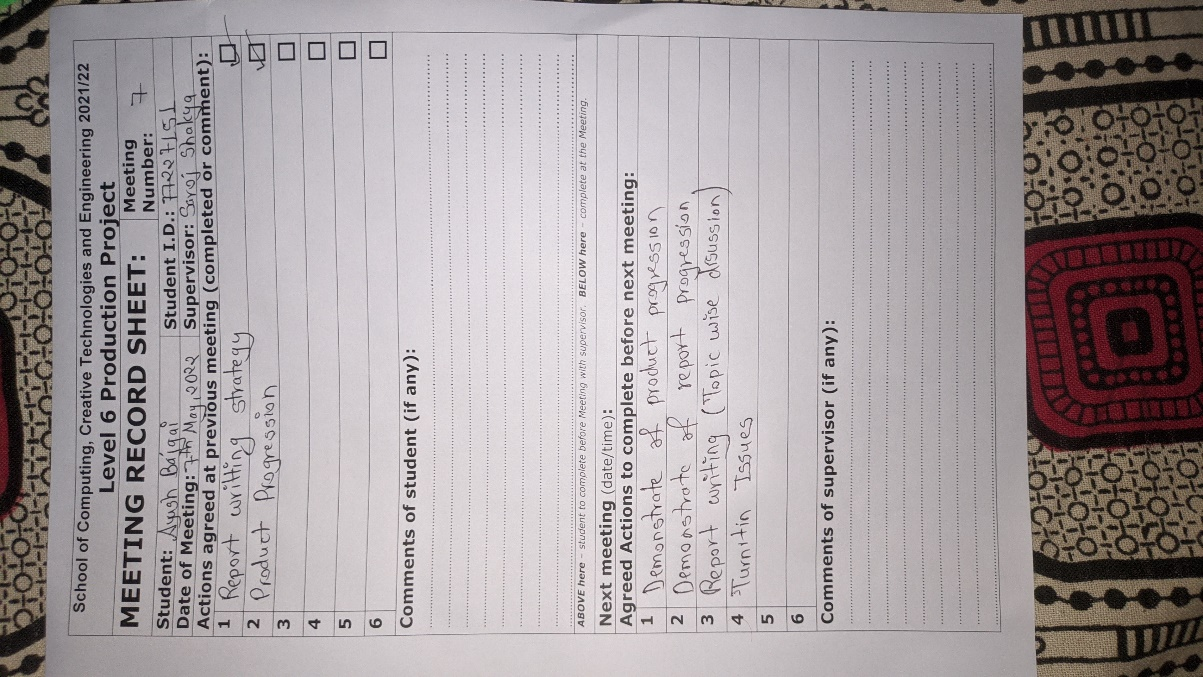 School of Computing, Creative Technologies and Engineering 2021/22
Level 6 Production Project
MEETING RECORD SHEET: Meeting Number: 7
Student: Ayush Bajgai Student I.D.: 77227151
Date of Meeting: 7th May, 2022 Supervisor: Saroj Shakya
Actions agreed at previous meeting (completed or comment):
1 Report writting strategy
2 Product Progression
3
4
5
6
Comments of student (if any):
ABOVE here – student to complete before Meeting with supervisor. BELOW here – complete at the Meeting.
Next meeting (date/time):
Agreed Actions to complete before next meeting:
1 Demonstrate of product progression
2 Demonstrate of report progression
3 Report writing (Topic wise disussion)
4 Turnitin Issues
5
6
Comments of supervisor (if any):